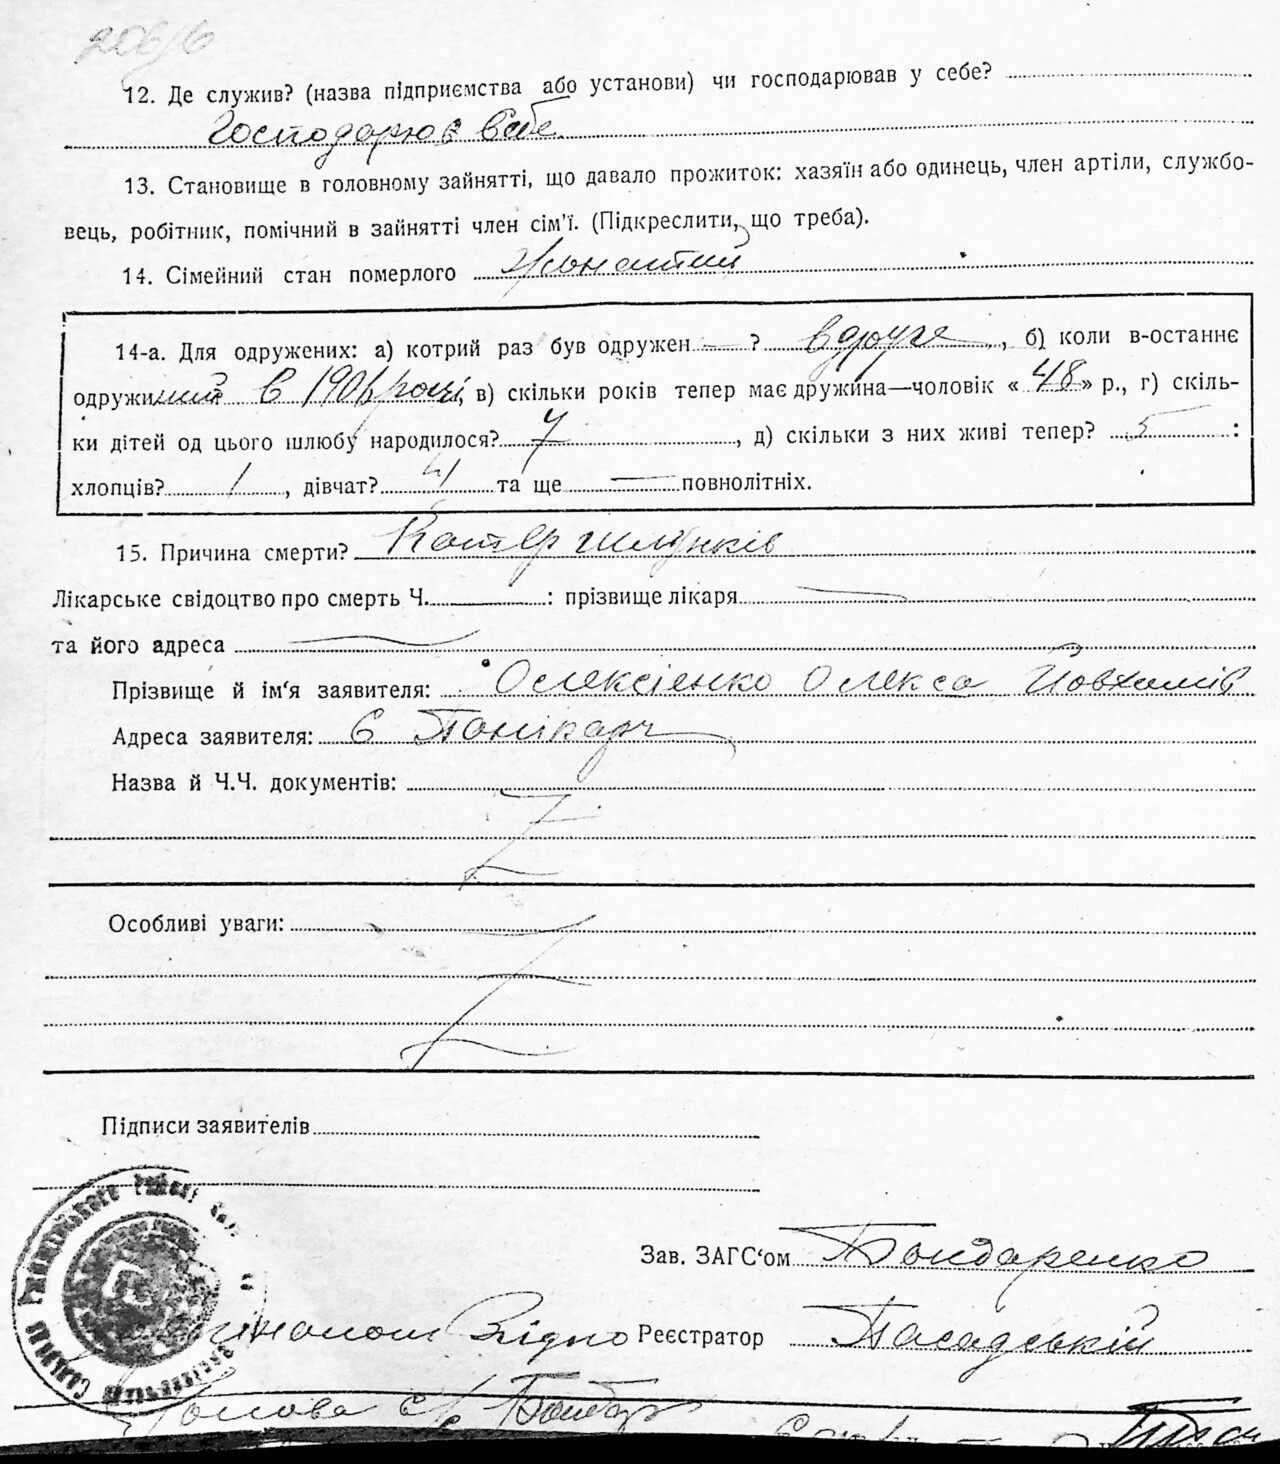 206/6
12. Де служив? (назва підприємства або установи) чи господарював у себе?
Господарює в себе
13. Становище в головному зайнятті, що давало прожиток: хазяїн або одинець, член артіли, службо-
вець, робітник, помічний в зайнятті член сім'ї. (Підкреслити, що треба).
14. Сімейний стан померлого жонатий
14-а. Для одружених: а) котрий раз був одружен — ? вдруге, б) коли в-останнє
одружи в 190 році, в) скільки років тепер має дружина—чоловік « 48 » р., г) скіль-
ки дітей од цього шлюбу народилося? 7, д) скільки з них живі тепер? 5 :
хлопців? 1, дівчат? 4 та ще — повнолітніх.
15. Причина смерти? Катер шлунків
Лікарське свідоцтво про смерть Ч. : прізвище лікаря —
та його адреса —
Прізвище й ім'я заявителя: Олексієнко Олекса Йовхимів
Адреса заявителя: с
Назва й Ч.Ч. документів:
Особливі уваги:
Підписи заявителів
Зав. ЗАГС'ом Бондаренко
Згідно Реєстратор Пасадській
Голова с/р